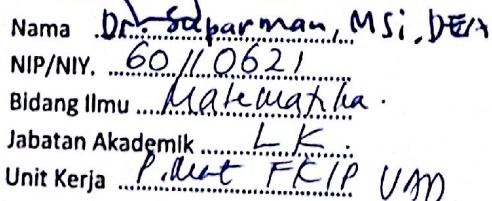 Nama Dr. Suparman, MSi, DEA
NIP/NIY. 60110621
Bidang Ilmu Matematika.
Jabatan Akademik LK.
Unit Kerja P. Mat FKIP UAD